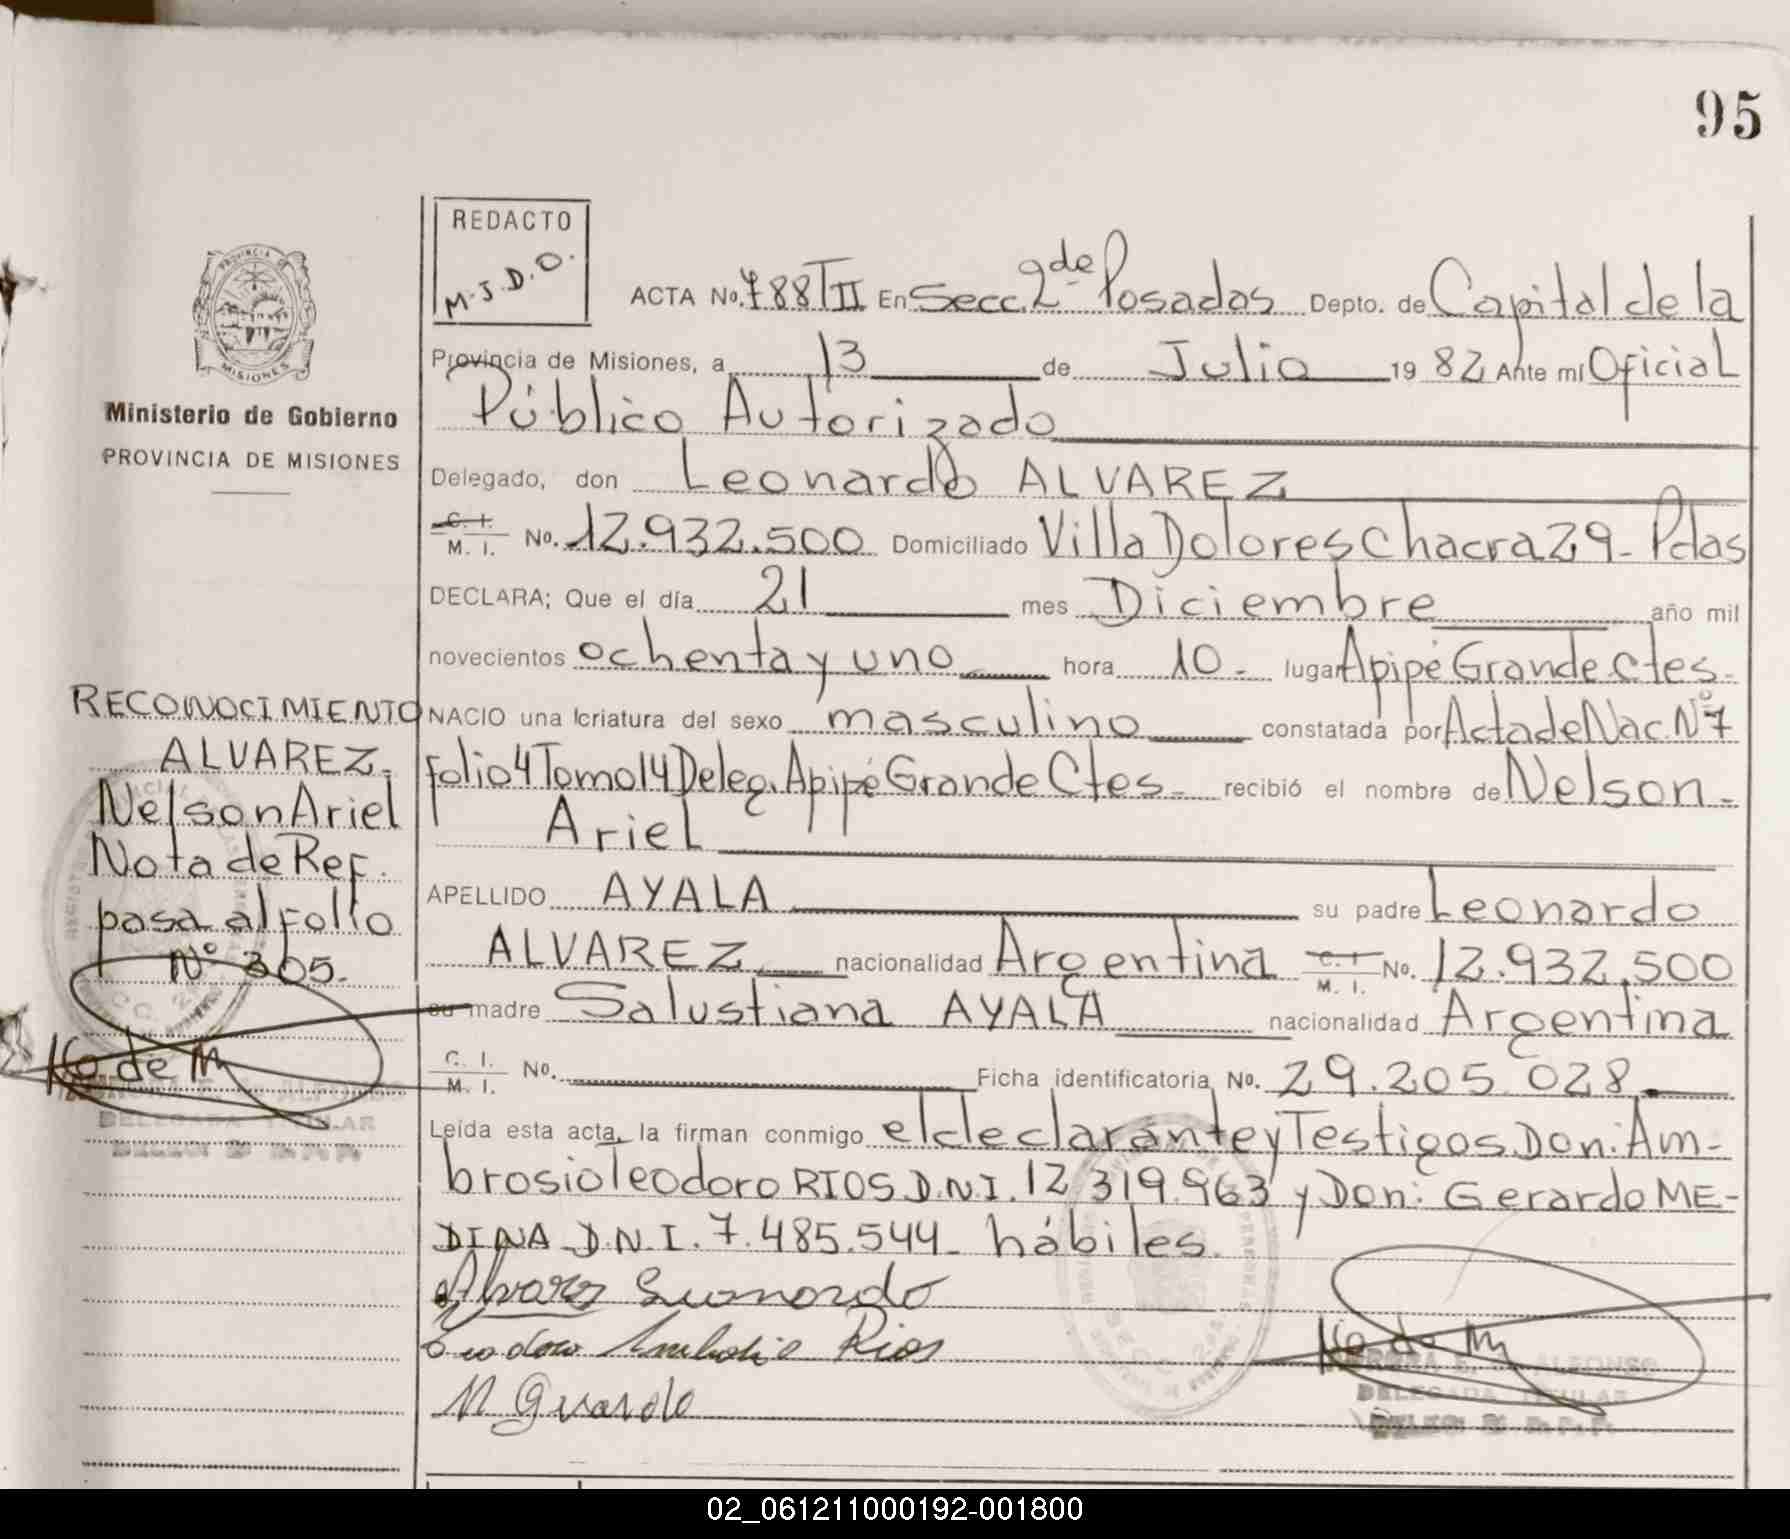 95
REDACTO
M.J.D.O.
PROVINCIA DE
MISIONES
Ministerio de Gobierno
PROVINCIA DE MISIONES
ACTA No. 788 TII En Secc. 2da de Posadas Depto. de Capital de la
Provincia de Misiones, a 13 de Julio 19 82 Ante mí Oficial
Público Autorizado
Delegado, don Leonardo ALVAREZ
C. I. / M. I. No. 12.932.500 Domiciliado Villa Dolores Chacra 29- Pdas
DECLARA; Que el día 21 mes Diciembre año mil
novecientos ochenta y uno hora 10- lugar Apipé Grande Ctes-
NACIO una criatura del sexo masculino constatada por Acta de Nac. Nº 7
Folio 4 Tomo 14 Deleg. Apipé Grande Ctes- recibió el nombre de Nelson-
Ariel
APELLIDO AYALA su padre Leonardo
ALVAREZ nacionalidad Argentina C. I. / M. I. No. 12.932.500
su madre Salustiana AYALA nacionalidad Argentina
C. I. / M. I. No. Ficha identificatoria No. 29.205.028
Leída esta acta, la firman conmigo el declarante y Testigos Don: Am-
brosio Teodoro RIOS D.N.I. 12.319.963 y Don: Gerardo ME-
DINA D.N.I. 7.485.544- hábiles.
Alvarez Leonardo
Teodoro Ambrosio Rios
M Gerardo
ALFONSO
DELEGADA TITULAR
RECONOCIMIENTO
ALVAREZ-
Nelson Ariel
Nota de Ref.
pasa al folio
Nº 305-
ALFONSO
DELEGADA TITULAR
02_061211000192-001800